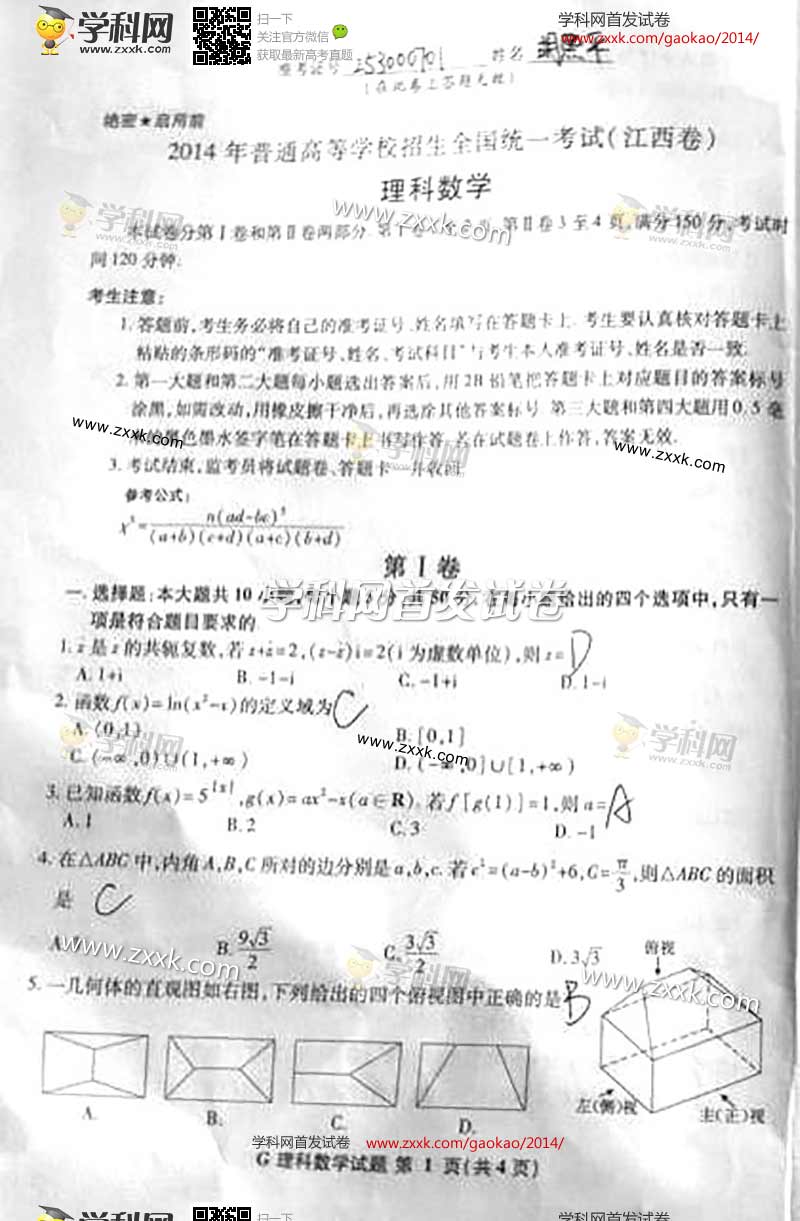 学科网
www.zxxk.com
扫一下
关注官方微信
获取最新高考真题
学科网首发试卷
www.zxxk.com/gaokao/2014/
准考证号 姓名
(在此卷上答题无效)
绝密★启用前
2014年普通高等学校招生全国统一考试(江西卷)
理科数学
本试卷分第Ⅰ卷和第Ⅱ卷两部分.第Ⅰ卷 第Ⅱ卷3至4页,满分150分,考试时
间120分钟.
考生注意:
1.答题前,考生务必将自己的准考证号、姓名填写在答题卡上.考生要认真核对答题卡上
粘贴的条形码的“准考证号、姓名、考试科目”与考生本人准考证号、姓名是否一致.
2.第一大题和第二大题每小题选出答案后,用2B铅笔把答题卡上对应题目的答案标号
涂黑,如需改动,用橡皮擦干净后,再选涂其他答案标号.第三大题和第四大题用0.5毫
米的黑色墨水签字笔在答题卡上书写作答.若在试题卷上作答,答案无效.
3.考试结束,监考员将试题卷、答题卡一并收回.
参考公式:
n(ad-bc)²
x²=
(a+b)(c+d)(a+c)(b+d)
第Ⅰ卷
一.选择题:本大题共10小题, 给出的四个选项中,只有一
项是符合题目要求的.
1.z̄是z的共轭复数,若z+z̄=2,(z-z̄)i=2(i为虚数单位),则z= D
A.1+i B.-1-i C.-1+i D.1-i
2.函数f(x)=ln(x²-x)的定义域为 C
A.(0,1) B.[0,1]
C.(-∞,0)∪(1,+∞) D.(-∞,0]∪[1,+∞)
3.已知函数f(x)=5^|x|,g(x)=ax²-x(a∈R).若f[g(1)]=1,则a= A
A.1 B.2 C.3 D.-1
4.在△ABC中,内角A,B,C所对的边分别是a,b,c.若c²=(a-b)²+6,C=π/3,则△ABC的面积
是 C
A. B.9√3/2 C.3√3/2 D.3√3
5.一几何体的直观图如右图,下列给出的四个俯视图中正确的是 B
俯视
左(侧)视 主(正)视
A. B. C. D.
学科网首发试卷 www.zxxk.com/gaokao/2014/
G 理科数学试题 第1页(共4页)
学科网 扫一下 学科网首发试卷